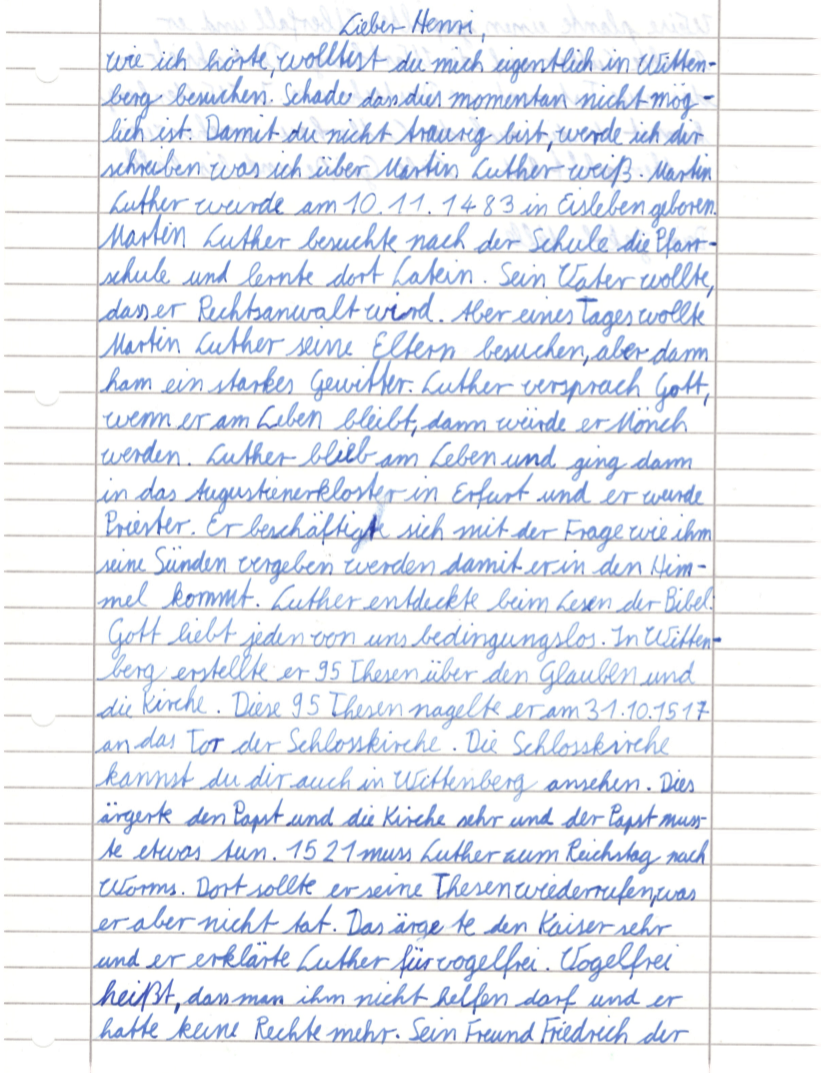 Lieber Henri,
wie ich hörte, wolltest du mich eigentlich in Witten-
berg besuchen. Schade dass dies momentan nicht mög-
lich ist. Damit du nicht traurig bist, werde ich dir
schreiben was ich über Martin Luther weiß. Martin
Luther wurde am 10.11.1483 in Eisleben geboren.
Martin Luther besuchte nach der Schule die Pfarr-
schule und lernte dort Latein. Sein Vater wollte,
dass er Rechtsanwalt wird. Aber eines Tages wollte
Martin Luther seine Eltern besuchen, aber dann
kam ein starkes Gewitter. Luther versprach Gott,
wenn er am Leben bleibt, dann würde er Mönch
werden. Luther blieb am Leben und ging dann
in das Augustienerkloster in Erfurt und er wurde
Priester. Er beschäftigte sich mit der Frage wie ihm
seine Sünden vergeben werden damit er in den Him-
mel kommt. Luther entdeckte beim Lesen der Bibel:
Gott liebt jeden von uns bedingungslos. In Witten-
berg erstellte er 95 Thesen über den Glauben und
die Kirche. Diese 95 Thesen nagelte er am 31.10.1517
an das Tor der Schlosskirche. Die Schlosskirche
kannst du dir auch in Wittenberg ansehen. Dies
ärgerte den Papst und die Kirche sehr und der Papst muss-
te etwas tun. 1521 muss Luther zum Reichstag nach
Worms. Dort sollte er seine Thesen wiederrufen, was
er aber nicht tat. Das ärge te den Kaiser sehr
und er erklärte Luther für vogelfrei. Vogelfrei
heißt, dass man ihm nicht helfen darf und er
hatte keine Rechte mehr. Sein Freund Friedrich der